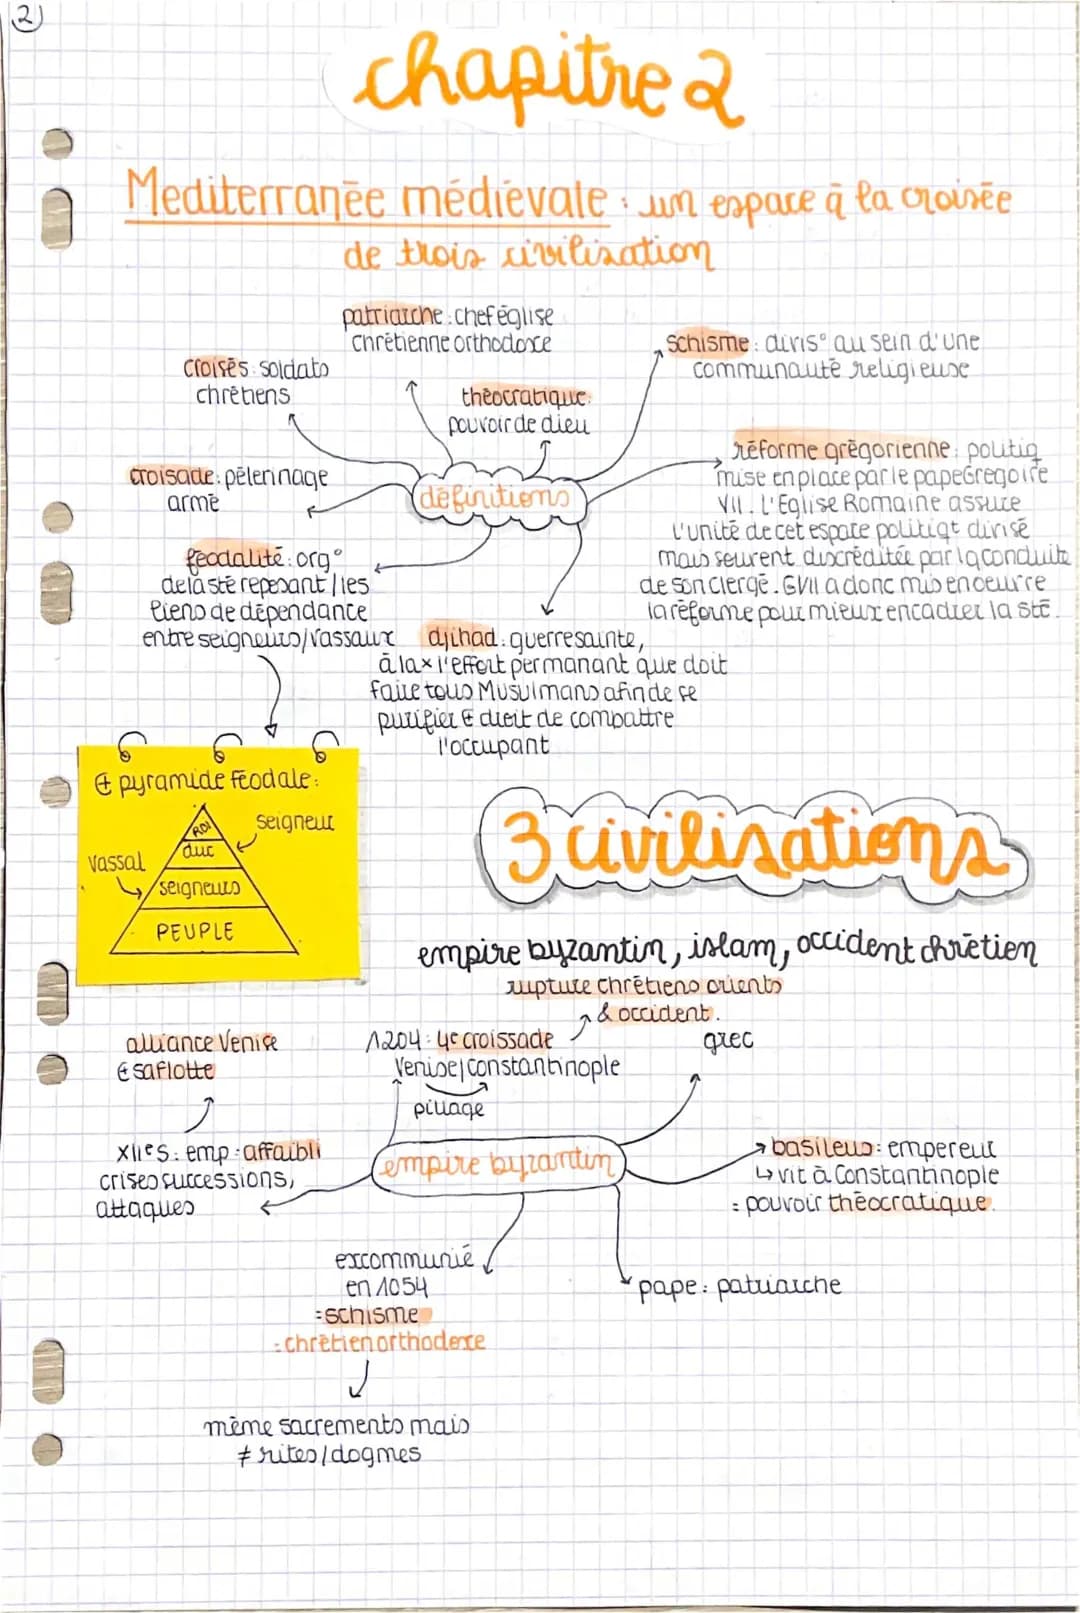 2)
chapitre 2
Mediterranée médiévale : un espace à la croisée
de trois civilisation
patriarche : chef église
chrétienne orthodoxe
schisme : divis° au sein d'une
communauté religieuse
croisés : soldats
chrétiens
théocratique :
pouvoir de dieu
réforme grégorienne : politiq
mise en place par le pape Gregoire
VII. L'Eglise Romaine assure
l'unité de cet espace politiqt divisé
mais seuvent discréditée par la conduite
de son clergé. GVII a donc mis en oeuvre
la réforme pour mieux encadrer la sté.
croisade : pélerinage
armé
définitions
féodalité : org°
de la sté reposant / les
liens de dépendance
entre seigneurs/vassaux
djihad : guerre sainte,
à la x l'effort permanant que doit
faire tous Musulmans afin de se
purifier & dreit de combattre
l'occupant
⊕ pyramide féodale :
ROI
seigneur
duc
vassal
seigneurs
PEUPLE
3 civilisations
empire byzantin, islam, occident chrétien
rupture chrétiens orients
& occident.
alliance Venise
& sa flotte
1204 : 4e croissade
Venise/Constantinople
pillage
grec
XIIe s : emp : affaibli
crises successions,
attaques
empire byzantin
basileus : empereur
↳ vit à Constantinople
= pouvoir théocratique.
excommunié
en 1054
=schisme
= chrétien orthodoxe
pape : patriarche
même sacrements mais
≠ rites / dogmes